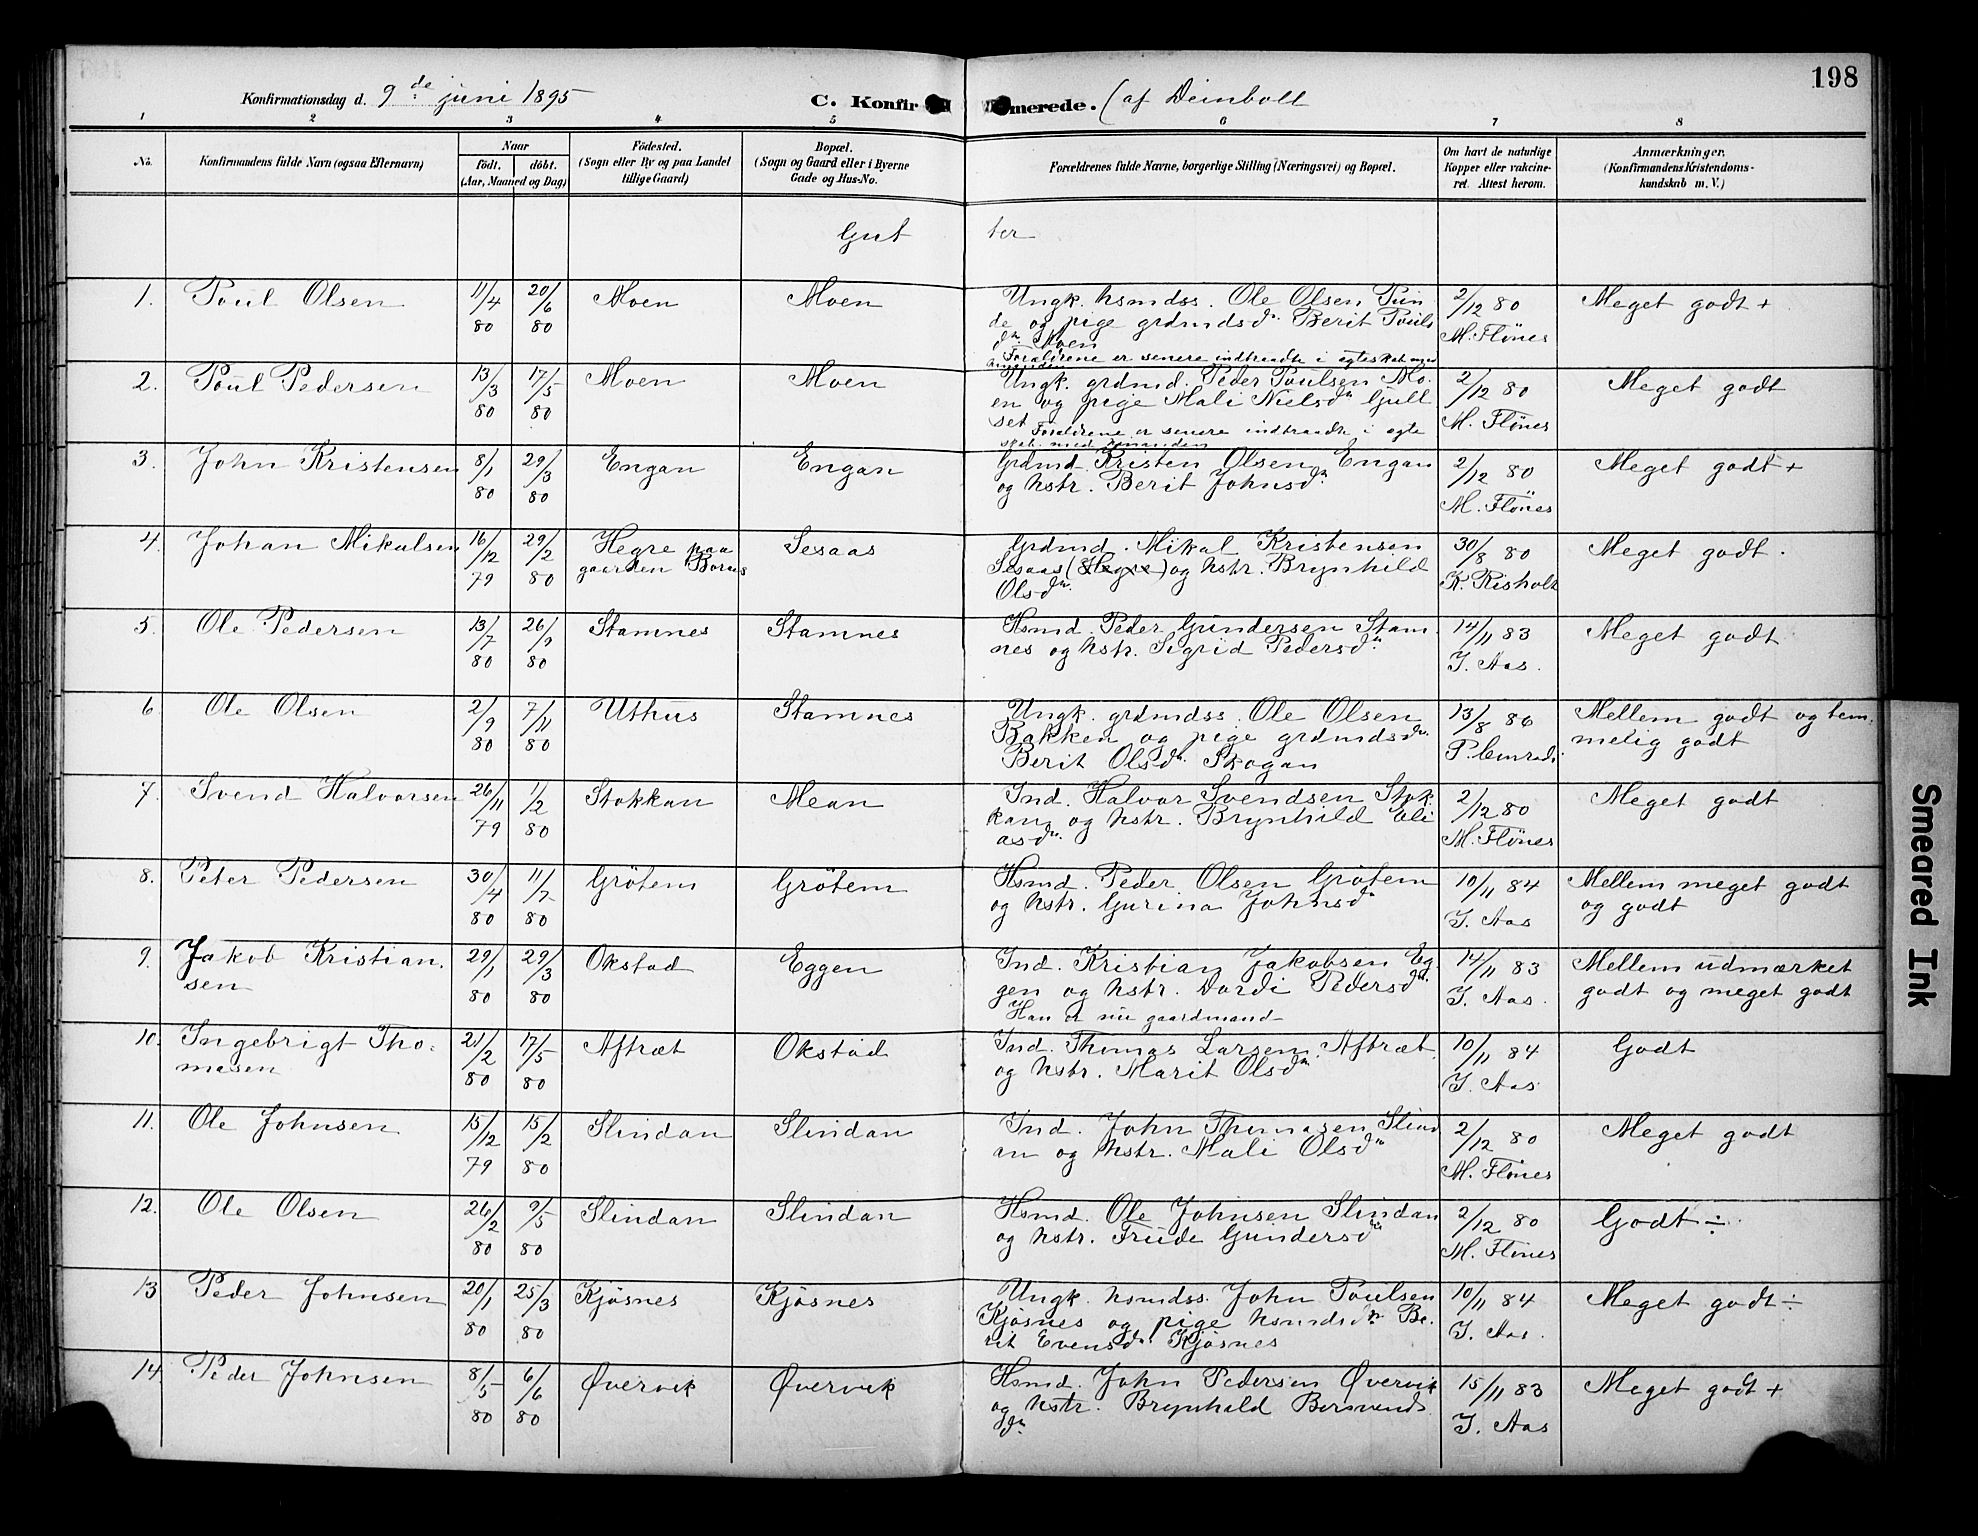 198
Konfirmationsdag d. 9de juni 1895 C. Konfirmerede. (af Deinboll
1 2 3 4 5 6 7 8
No. Konfirmandens fulde Navn (ogsaa Efternavn) Naar født. døbt. (Aar, Maaned og Dag) Fødested. (Sogn eller By og paa Landet tillige Gaard) Bopæl. (Sogn og Gaard eller i Byerne Gade og Hus-No. Forældrenes fulde Navne, borgerlige Stilling (Næringsvei) og Bopæl. Om havt de naturlige Kopper eller vakcineret. Attest herom. Anmærkninger. (Konfirmandens Kristendomskundskab m. V.)
Gutter
1. Poul Olsen 11/4 80 20/6 80 Moen Moen Ungk. hsmdss. Ole Olsen Tun
de og pige grdmdsdr. Berit Pouls
dr. Moen
Forældrene er senere indtraadte i egteskab med
hinanden
2/12 80 M. Flönes Meget godt +
2. Poul Pedersen 13/3 80 17/5 80 Moen Moen Ungk. grdmd. Peder Poulsen Mo-
en og pige Mali Nielsdr. Gjull
set Forældrene er senere indtraadte i egte
skab med hinanden
2/12 80 M. Flönes Meget godt
3. John Kristensen 8/1 80 29/3 80 Engan Engan Grdmd. Kristen Olsen Engan
og hstr. Berit Johnsdr.
2/12 80 M. Flönes Meget godt +
4. Johan Mikalsen 16/12 79 29/2 80 Hegre paa
gaarden Boraas Sesaas Grdmd. Mikal Kristensen
Sesaas (Hegre) og hstr. Brynhild
Olsdr.
30/8 80 K. Risholt Meget godt.
5. Ole Pedersen 13/7 80 26/9 80 Stamnes Stamnes Hsmd. Peder Gundersen Stam-
nes og hstr. Sigrid Pedersdr.
14/11 83 J. Aas. Meget godt
6 Ole Olsen 2/9 80 7/11 80 Uthus Stamnes Ungk. grdmdss. Ole Olsen
Bakken og pige grdmdsdr.
Berit Olsdr. Skogan
13/8 86 P. Conradi Mellem godt og tem-
melig godt
7. Svend Halvorsen 26/11 79 1/2 80 Stokkan Mean Ind. Halvor Svendsen Stok
kan og hstr. Brynhild Eli
asdr.
2/12 80 M. Flönes Meget godt
8. Peter Pedersen 30/4 80 11/7 80 Grötem Grötem Hsmd. Peder Olsen Grötem
og hstr. Gurina Johnsdr
10/11 84 J. Aas Mellem meget godt
og godt
9. Jakob Kristian-
sen 29/1 80 29/3 80 Okstad Eggen Ind. Kristian Jakobsen Eg
gen og hstr. Dordi Pedersdr.
Han er nu gaardmand
14/11 83 J. Aas. Mellem udmærket
godt og meget godt
10. Ingebrigt Tho-
masen 21/2 80 17/5 80 Aftræt Okstad Ind. Thomas Larsen Aftræt
og hstr. Marit Olsdr
10/11 84 J. Aas. Godt
11. Ole Johnsen 15/12 79 15/2 80 Slindan Slindan Ind. John Thomasen Slind
an og hstr. Mali Olsdr
2/12 80 M. Flönes Meget godt
12. Ole Olsen 26/2 80 9/5 80 Slindan Slindan Hsmd. Ole Johnsen Slindan
og hstr. Gundersdr
2/12 80 M. Flönes Godt ÷
13 Peder Johnsen 20/1 80 25/3 80 Kjøsnes Kjøsnes Ungk. hsmdss. John Poulsen
Kjøsnes og pige hsmdsdr Be-
rit Evensdr. Kjøsnes
10/11 84 J. Aas. Meget godt ÷
14. Peder Johnsen 8/5 80 6/6 80 Øvervik Øvervik Hsmd. John Pedersen Øvervik
og hstr. Brynhild Bersvends
dr.
15/11 83 J. Aas Meget godt +
Smeared Ink